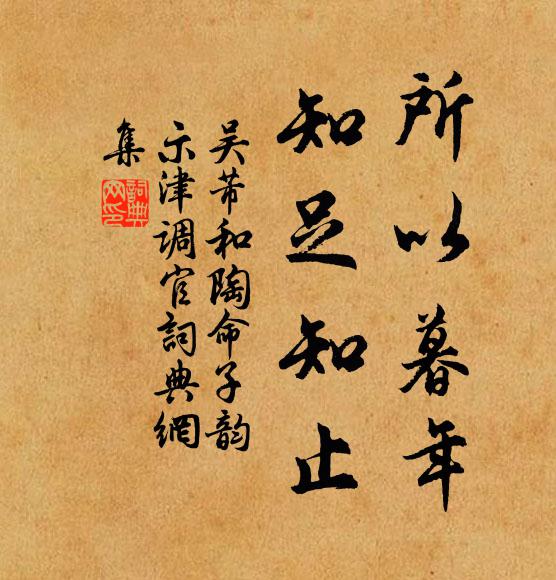 所以暮年
知足知止
吴芾和陶命子韵
示津调官詞典網
集
詞典
网印